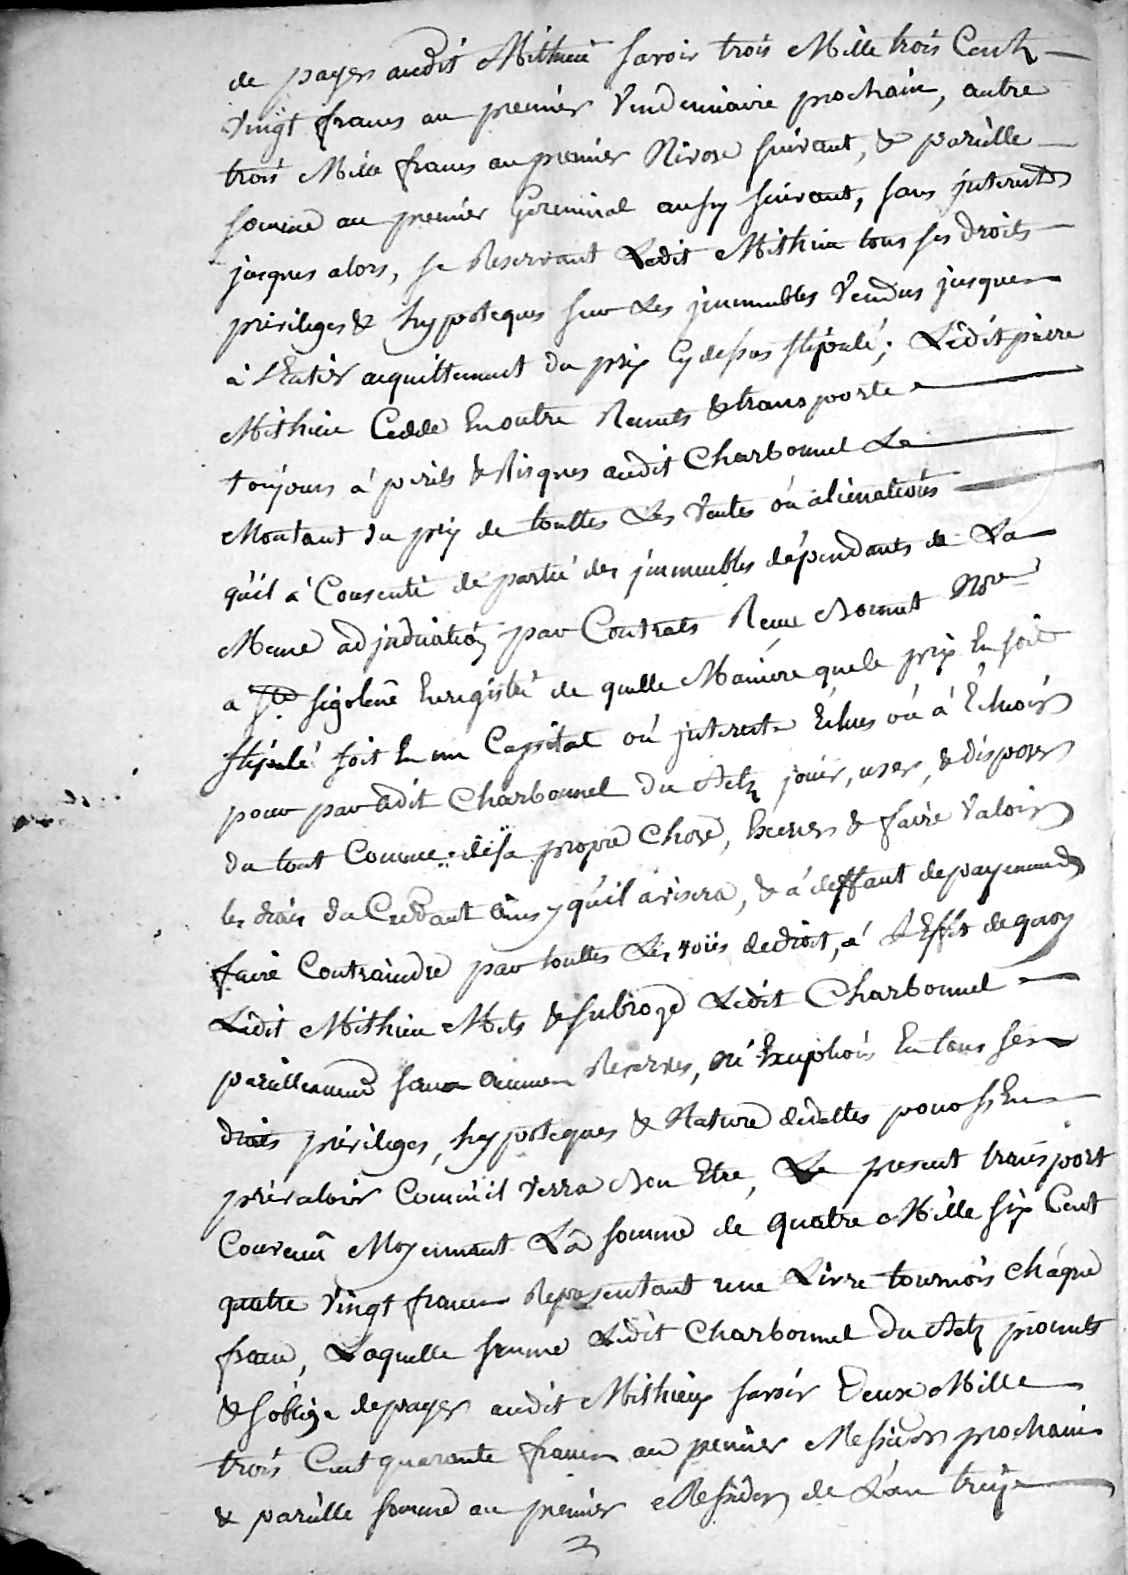 de payer audit Mithieu savoir trois Mille trois Cent
Vingt francs au premier Vendemiaire prochain, autre
trois Mille francs au premier Nivose suivant, & pareille
somme au premier Germinal aussy suivant, sans jnterets
jusques alors, se Reservant Ledit Mithieu tous ses droits
privileges & hypoteques sur Les jmmeubles Vendus jusques
à L'Entier acquittement du prix Cy dessus stipulé; Ledit pierre
Mithieu Cedde En outre Remets & transporte
toujours à perils & Risques audit Charbonnel Le
Montant du prix de touttes Les Ventes où alienations
qu'il à Consenti de partie des jmmeubles dépendants de La
Meme adjudication par Contrats Reçue Bonnet Nre
a Ste sigolene Enregistré de quelle Maniere que le prix En soit
stipulé soit En un Capital où jnterets Echus où à Echoir
pour par Ledit Charbonnel Du Betz jouir, user, & disposer
du tout Comme de sa propre Chose, Exercer & faire Valoir
les droits du Ceddant ainsy qu'il avisera, & à deffaut de payement
faire Contraindre par touttes Les voïes de droit, à L'Effet de quoy
Ledit Mithieu Mets & subroge Ledit Charbonnel
pareillement sans aucunes Reserves, ni Exceptions En tous ses
droits privileges, hypoteques & Nature de dettes pour s'En
prévaloir Comm'il verra Bon Etre, Le present transport
Convenû Moyennant La somme de quatre Mille six Cent
quatre Vingt francs Representant une Livre tournois cháque
franc, Laquelle somme Ledit Charbonnel Du Betz promets
& s'oblige de payer audit Mithieu savoir Deux Mille
trois Cent quarante francs au premier Messidor prochain
& pareille somme au premier Messidor de L'an treize